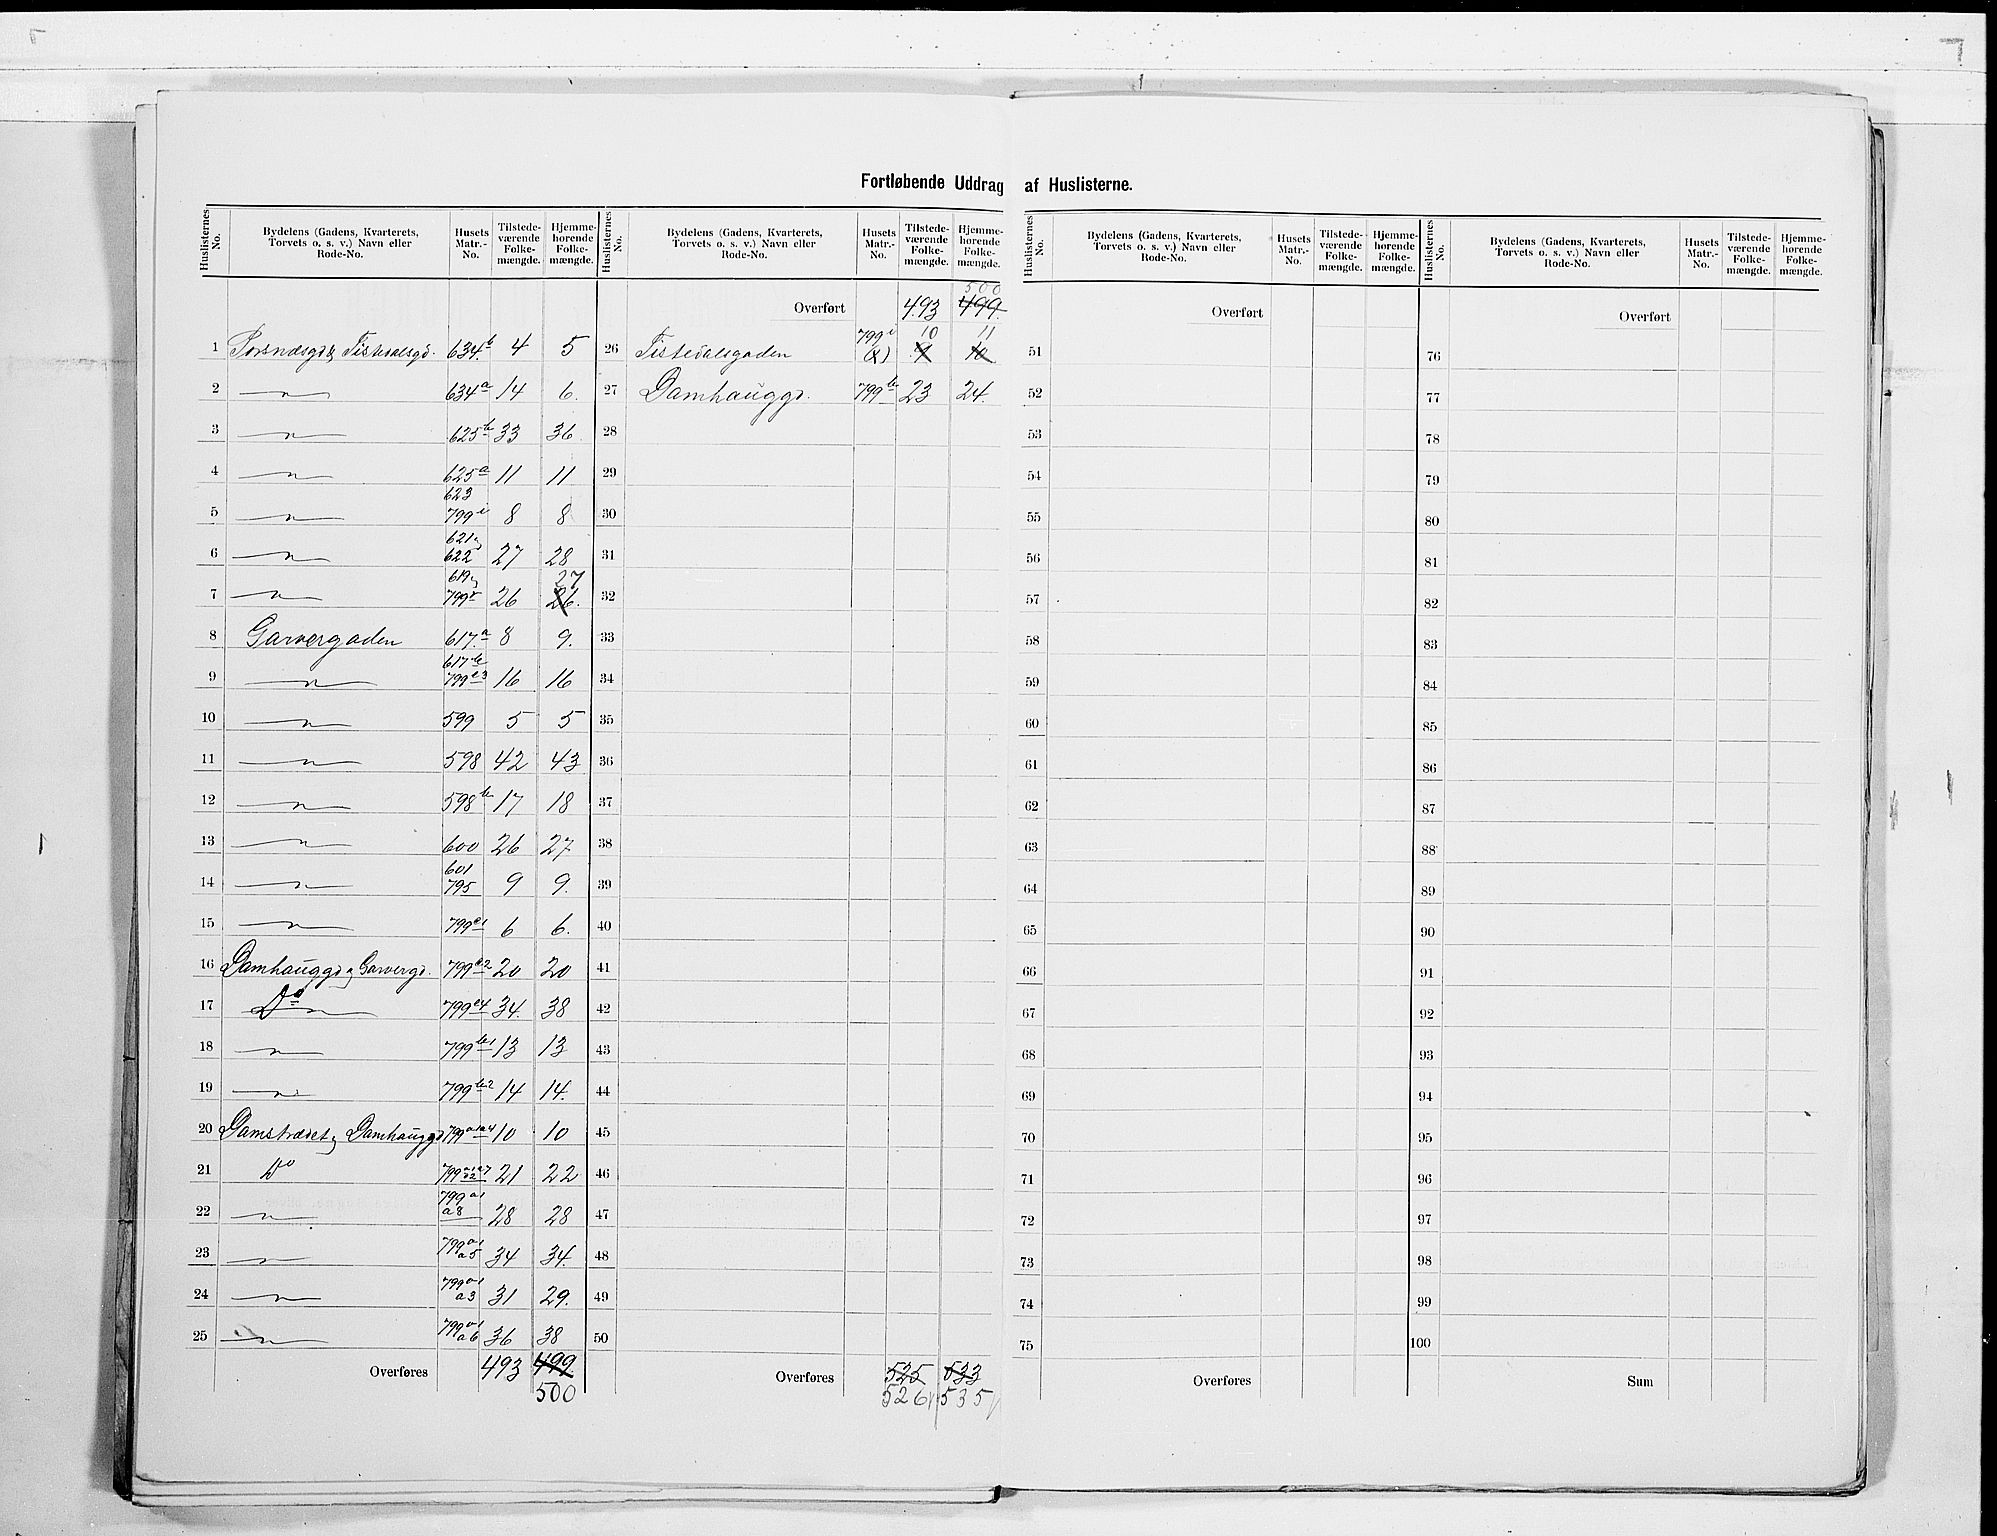 Fortløbende Uddrag af Huslisterne.
Huslisternes No. Bydelens (Gadens, Kvarterets, Torvets o. s. v.) Navn eller Rode-No. Husets Matr.-No. Tilstede-værende Folke-mængde. Hjemme-hørende Folke-mængde.
1 Tistedalsgd. 634 b 4 5
2 — " — 634 a 14 6.
3 — " — 625 b 33 36
4 — " — 625 a 11 11
5 — " — 623 799 i 8 8
6 — " — 621 og 622 27 28
7 — " — 619 og 799 26 26. 27
8 Garvergaden 617. a 8 9.
9 — " — 617 b 799 e3 16 16
10 — " — 599 5 5
11 — " — 598 42 43
12 — " — 598 b 17 18
13 — " — 600 26 27
14 — " — 601 795 9 9.
15 — " — 799 e1 6 6.
16 Damhauggd og Garvergd. 799 e2 20 20
17 Do 799 e4 34. 38
18 — " — 799 b1 13 13
19 — " — 799 b2 14 14.
20 Damstrædet og Damhauggd 799 a1 a4 10 10
21 Do 799 a1 a7 a2 21 22
22 — " — 799 a1 a8 28 28
23 — " — 799 a1 a5 34 34.
24 — " — 799 a1 a3 31 29.
25 — " — 799 a1 a6 36 38
Overføres 493 499.
500
Huslisternes No. Bydelens (Gadens, Kvarterets, Torvets o. s. v.) Navn eller Rode-No. Husets Matr.-No. Tilstede-værende Folke-mængde. Hjemme-hørende Folke-mængde.
500
Overført 493 499.
26 Tistedalsgaden 799 i 9 10 10 11
27 Damhauggd. 799 b 23 24.
28
29
30
31
32
33
34
35
36
37
38
39
40
41
42
43
44
45
46
47
48
49
50
Overføres 525 533
526 535
Huslisternes No. Bydelens (Gadens, Kvarterets, Torvets o. s. v.) Navn eller Rode-No. Husets Matr.-No. Tilstede-værende Folke-mængde. Hjemme-hørende Folke-mængde.
Overført
51
52
53
54
55
56
57
58
59
60
61
62
63
64
65
66
67
68
69
70
71
72
73
74
75
Overføres
Huslisternes No. Bydelens (Gadens, Kvarterets, Torvets o. s. v.) Navn eller Rode-No. Husets Matr.-No. Tilstede-værende Folke-mængde. Hjemme-hørende Folke-mængde.
Overført
76
77
78
79
80
81
82
83
84
85
86
87
88
89
90
91
92
93
94
95
96
97
98
99
100
Sum